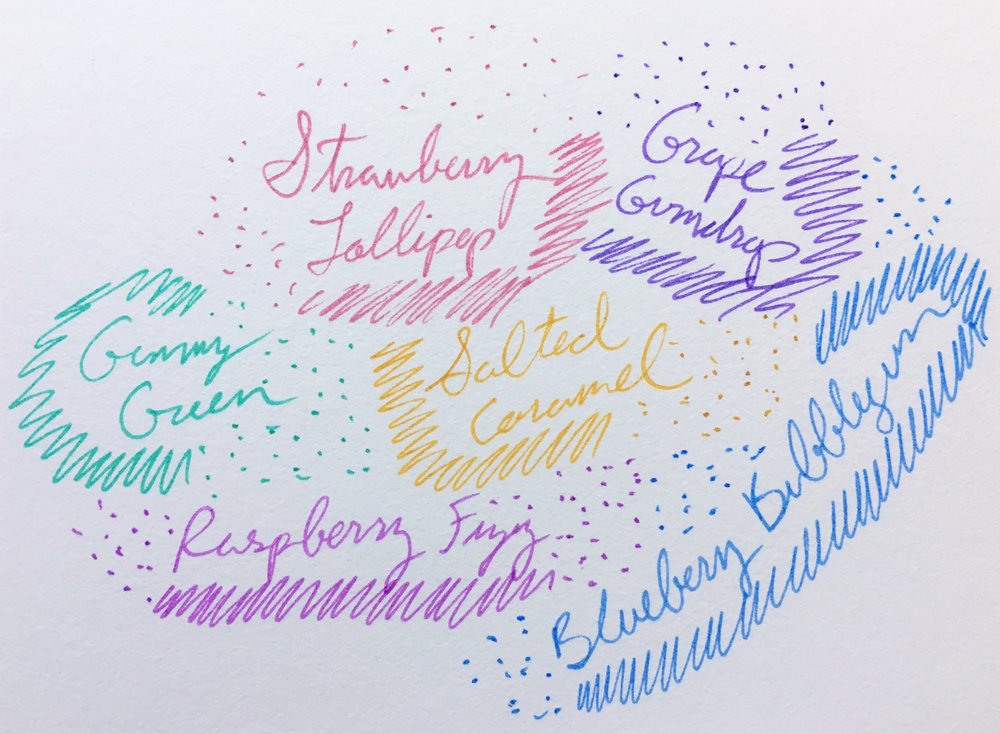 Strawberry
Lollipop
Grape
Gumdrop
Gummy
Green
Salted
Caramel
Raspberry Fizz
Blueberry Bubblegum